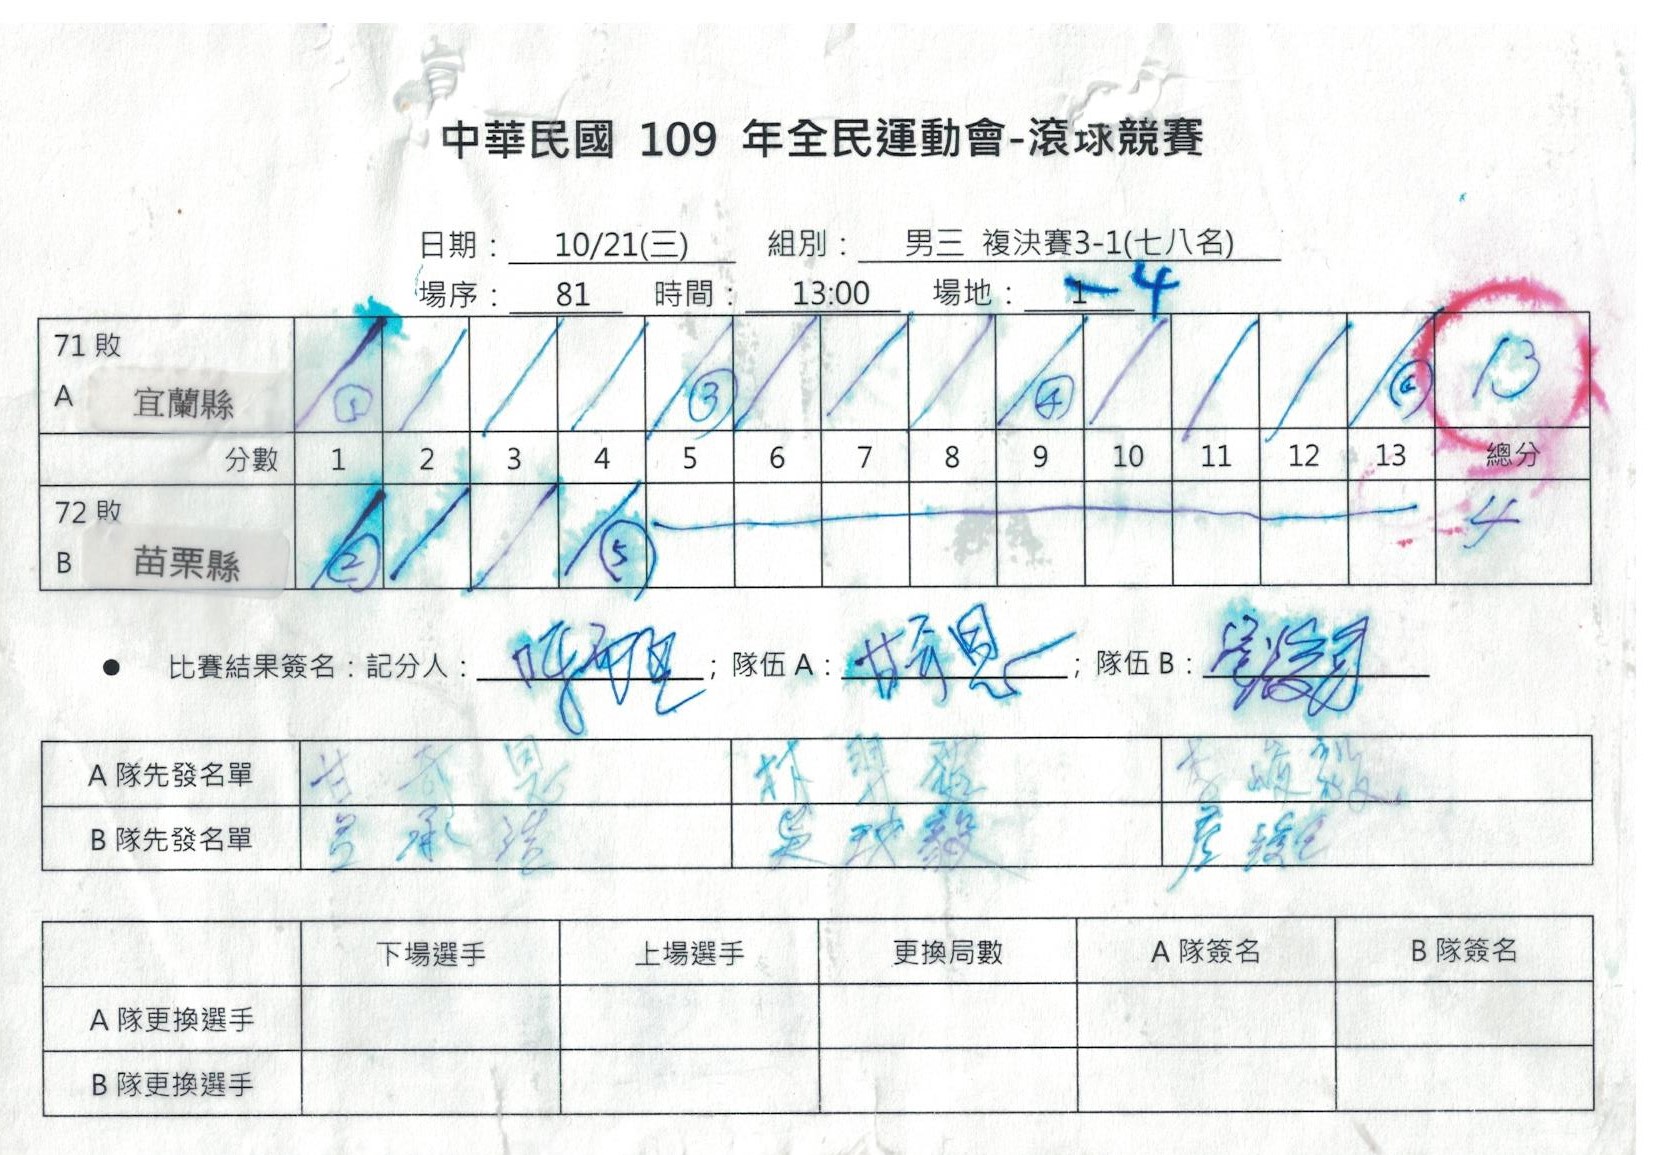 中華民國 109 年全民運動會-滾球競賽
日期： 10/21(三) 組別： 男三 複決賽3-1(七八名)
場序： 81 時間： 13:00 場地： 1 4
71 敗
A 宜蘭縣 1 3 4 6 13
分數 1 2 3 4 5 6 7 8 9 10 11 12 13 總分
72 敗
B 苗栗縣 2 5 4
● 比賽結果簽名：記分人： ；隊伍 A： 甘奇恩 ；隊伍 B：
A 隊先發名單 甘 奇 恩
B 隊先發名單 承
下場選手 上場選手 更換局數 A 隊簽名 B 隊簽名
A 隊更換選手
B 隊更換選手